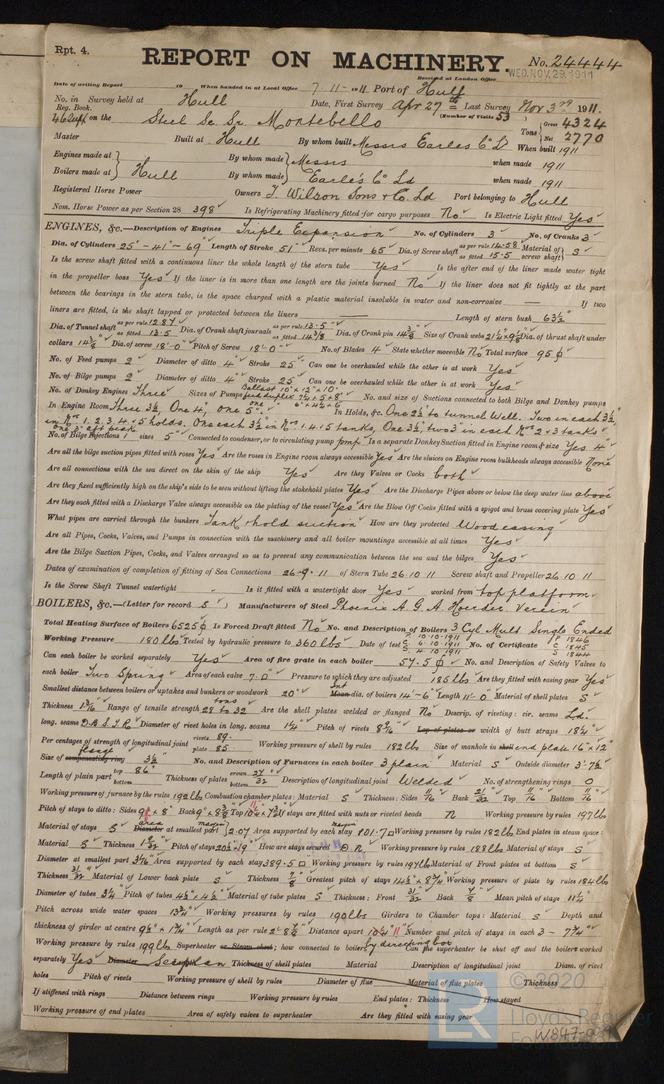 Rpt. 4.
REPORT ON MACHINERY.
No. 24444
Received at London Office WED. NOV. 29. 1911
Date of writing Report 19 When handed in at Local Office 7 11 - 1911 Port of Hull
No. in Survey held at Hull Date, First Survey Apr 27th Last Survey Nov 3rd 1911.
Reg. Book. (Number of Visits 53)
on the Steel Sc. Sr. Montebello Tons Gross 4324 Net 2770
Master Built at Hull By whom built Messrs Earles Co Ld When built 1911
Engines made at Hull By whom made Messrs when made 1911
Boilers made at By whom made Earle's Co Ld when made 1911
Registered Horse Power Owners T. Wilson Sons & Co. Ld Port belonging to Hull
Nom. Horse Power as per Section 28 398 Is Refrigerating Machinery fitted for cargo purposes No Is Electric Light fitted Yes
ENGINES, &c.—Description of Engines Triple Expansion No. of Cylinders 3 No. of Cranks 3
Dia. of Cylinders 25" - 41" - 69" Length of Stroke 51" Revs. per minute 65 Dia. of Screw shaft as per rule 14.58 as fitted 15.5 Material of screw shaft S
Is the screw shaft fitted with a continuous liner the whole length of the stern tube Yes Is the after end of the liner made water tight
in the propeller boss Yes If the liner is in more than one length are the joints burned No If the liner does not fit tightly at the part
between the bearings in the stern tube, is the space charged with a plastic material insoluble in water and non-corrosive — If two
liners are fitted, is the shaft lapped or protected between the liners — Length of stern bush 63½"
Dia. of Tunnel shaft as per rule 12.87 as fitted 13.5 Dia. of Crank shaft journals as per rule 13.5" as fitted 14 3/8 Dia. of Crank pin 14 3/8 Size of Crank webs Dia. of thrust shaft under
collars 14 3/8 Dia. of screw 18'-0" Pitch of Screw 18'-0" No. of Blades 4 State whether moveable No Total surface 95
No. of Feed pumps 2 Diameter of ditto 4" Stroke 25" Can one be overhauled while the other is at work Yes
No. of Bilge pumps 2 Diameter of ditto 4" Stroke 25" Can one be overhauled while the other is at work Yes
No. of Donkey Engines Three Sizes of Pumps Ballast 10" x 12" x 10" feed duplex No. and size of Suctions connected to both Bilge and Donkey pumps
In Engine Room Three 3½, One 4", one 5" In Holds, &c. One 2½" to tunnel Well. Two in each 3½"
in Nos 1, 2, 3, 4, & 5 holds. One each 3½ in Nos 1. 4. 5 tanks, One 3½, two 3" in each Nos 2 & 3 tanks
One 3" aft peak
No. of Bilge Injections 1 sizes 5" Connected to condenser, or to circulating pump pump Is a separate Donkey Suction fitted in Engine room & size Yes 4"
Are all the bilge suction pipes fitted with roses Yes Are the roses in Engine room always accessible Yes Are the sluices on Engine room bulkheads always accessible None
Are all connections with the sea direct on the skin of the ship Yes Are they Valves or Cocks both
Are they fixed sufficiently high on the ship's side to be seen without lifting the stokehold plates Yes Are the Discharge Pipes above or below the deep water line above
Are they each fitted with a Discharge Valve always accessible on the plating of the vessel Yes Are the Blow Off Cocks fitted with a spigot and brass covering plate Yes
What pipes are carried through the bunkers Tank & hold suction How are they protected Wood casing
Are all Pipes, Cocks, Valves, and Pumps in connection with the machinery and all boiler mountings accessible at all times Yes
Are the Bilge Suction Pipes, Cocks, and Valves arranged so as to prevent any communication between the sea and the bilges Yes
Dates of examination of completion of fitting of Sea Connections 26-9-11 of Stern Tube 26.10.11 Screw shaft and Propeller 26.10.11
Is the Screw Shaft Tunnel watertight Is it fitted with a watertight door Yes worked from top platform
BOILERS, &c.—(Letter for record S) Manufacturers of Steel Phoenix A. G. A. Hoerder Verein
Total Heating Surface of Boilers 6525 Is Forced Draft fitted No No. and Description of Boilers 3 Cyl. Mult. Single Ended
Working Pressure 180 lbs Tested by hydraulic pressure to 360 lbs Date of test P 10.10.1911 C 6.10.1911 S 4.10.1911 No. of Certificate P 1846 C 1845 S 1844
Can each boiler be worked separately Yes Area of fire grate in each boiler 57.5 No. and Description of Safety Valves to
each boiler Two Spring Area of each valve 7.0 Pressure to which they are adjusted 185 lbs Are they fitted with easing gear Yes
Smallest distance between boilers or uptakes and bunkers or woodwork 20" Mean dia. of boilers 14'-6" Length 11'-0" Material of shell plates S
Thickness 1 3/16 Range of tensile strength 28 to 32 tons Are the shell plates welded or flanged No Descrip. of riveting: cir. seams Ld.
long. seams D.B.S.T.R. Diameter of rivet holes in long. seams 1¼" Pitch of rivets Lap of plates or width of butt straps 18¼"
Per centages of strength of longitudinal joint rivets 89. plate 85. Working pressure of shell by rules 182 lbs Size of manhole in shell end plate 16" x 12"
Size of compensating ring flange 3½ No. and Description of Furnaces in each boiler 3 plain Material S Outside diameter 3'-7½"
Length of plain part top 86" bottom Thickness of plates crown bottom 32 Description of longitudinal joint Welded No. of strengthening rings 0
Working pressure of furnace by the rules 192 lbs Combustion chamber plates: Material S Thickness: Sides 11/16 Back 21/32 Top 11/16 Bottom 11/16
Pitch of stays to ditto: Sides Back Top If stays are fitted with nuts or riveted heads N Working pressure by rules 197 lbs
Material of stays S Diameter area at smallest part 2.07 Area supported by each stay 101.7 Working pressure by rules 182 lbs End plates in steam space:
Material S Thickness Pitch of stays 20½ x 19" How are stays secured D.N. Working pressure by rules 188 lbs Material of stays S
Diameter at smallest part 3 7/16 Area supported by each stay 389.5 Working pressure by rules 194 lbs Material of Front plates at bottom S
Thickness 31/32 Material of Lower back plate S Thickness 7/8 Greatest pitch of stays Working pressure of plate by rules 184 lbs
Diameter of tubes 3¼" Pitch of tubes 4½ x 4½ Material of tube plates S Thickness: Front 31/32 Back 7/8 Mean pitch of stays 11¼
Pitch across wide water spaces 13¾" Working pressures by rules 190 lbs Girders to Chamber tops: Material S Depth and
thickness of girder at centre 9½ x 1¾ Length as per rule Distance apart Number and pitch of stays in each 3 - 7¾"
Working pressure by rules 199 lbs Superheater or Steam chest; how connected to boilers by directing box Can the superheater be shut off and the boiler worked
separately Yes Diameter Thickness of shell plates Material Description of longitudinal joint Diam. of rivet
holes Pitch of rivets Working pressure of shell by rules Diameter of flue Material of flue plates Thickness
If stiffened with rings Distance between rings Working pressure by rules End plates: Thickness How stayed
Working pressure of end plates Area of safety valves to superheater Are they fitted with easing gear
© 2020
Lloyd's Register
Foundation